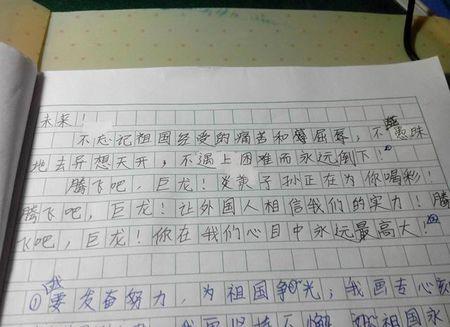 未来！
不忘记祖国经受的痛苦和屈辱，不愚昧
地去异想天开，不遇上困难而永远倒下！
腾飞吧，巨龙！炎黄子孙正在为你喝彩！
腾飞吧，巨龙！让外国人相信我们的实力！腾
飞吧，巨龙！你在我们心目中永远最高大！
①我要发奋努力，为祖国争光；我画专心
祖国永